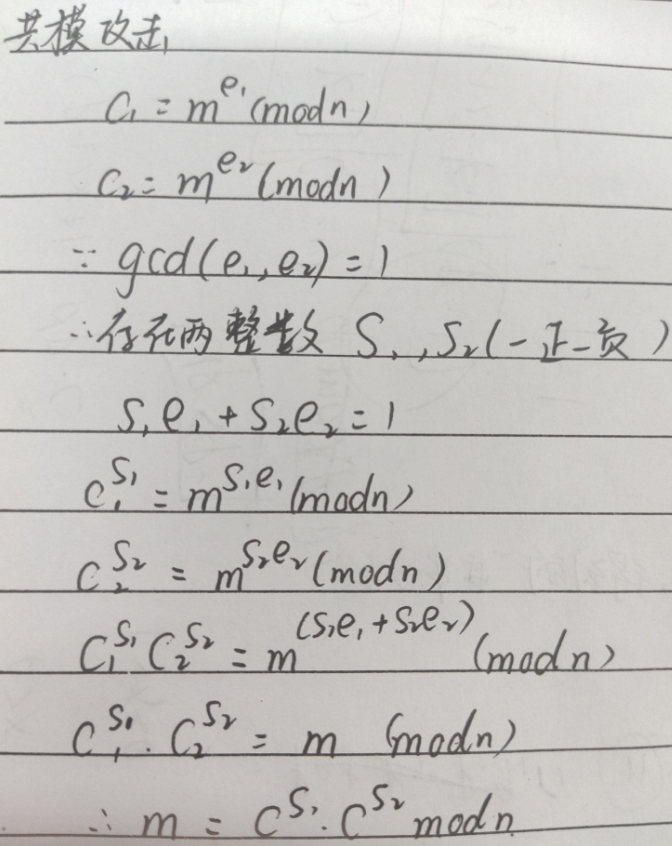 共模攻击
C₁ = m^e₁ (mod n)
C₂ = m^e₂ (mod n)
∵ gcd(e₁, e₂) = 1
∴ 存在两整数 S₁, S₂ (一正一负)
S₁e₁ + S₂e₂ = 1
C₁^S₁ = m^S₁e₁ (mod n)
C₂^S₂ = m^S₂e₂ (mod n)
C₁^S₁ C₂^S₂ = m^(S₁e₁ + S₂e₂) (mod n)
C₁^S₁ · C₂^S₂ = m (mod n)
∴ m = C^S₁ · C^S₂ mod n